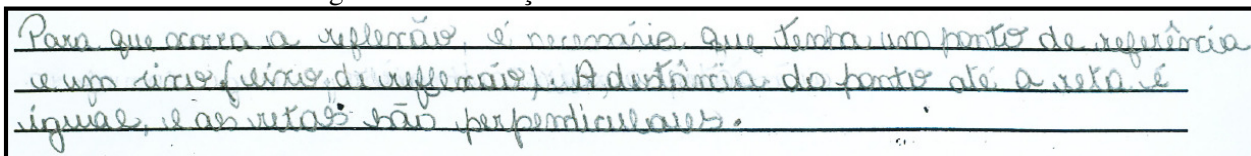 Para que ocorra a reflexão, é necessário que tenha um ponto de referência
e um eixo (eixo de reflexão). A distância do ponto até a reta é
igual, e as retas são perpendiculares.